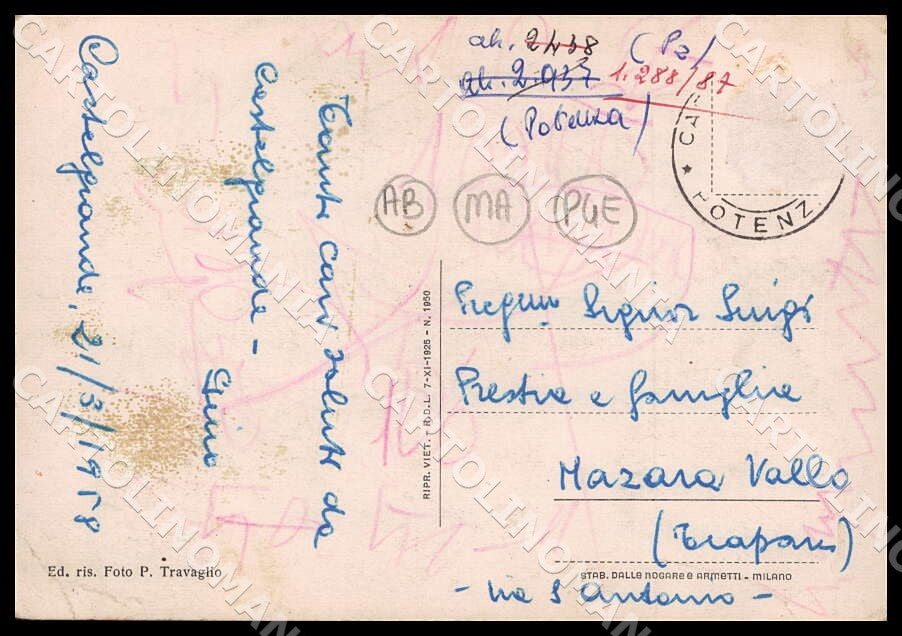 Castelgrande, 21/3/1958
Tanti cari saluti da
Castelgrande -
Gino
ah. 2438 (Pz)
ah. 2.937 1.288/87
(Potenza)
CA
* POTENZ
AB MA PGE
Pregmo Signor Luigi
Prestia e famiglia
Mazara Vallo
(Trapani)
- Via S Antonio -
RIPR. VIET. - R.D.L. 7-XI-1925 - N. 1950
Ed. ris. Foto P. Travaglio
STAB. DALLE NOGARE e ARMETTI - MILANO
CARTOLINOMANIA